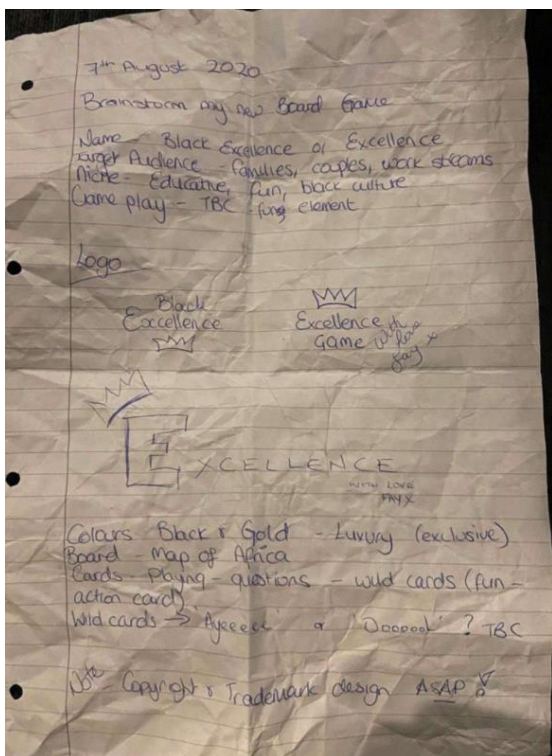 7th August 2020
Brainstorm my new Board Game
Name - Black Excellence or Excellence
Target Audience - families, couples, work streams
Niche - Educative, fun, black culture
Game play - TBC - fun element
Logo
Black
Excellence
Excellence
Game with
love
fay x
EXCELLENCE
WITH LOVE
FAY X
Colours Black & Gold - Luxury (exclusive)
Board - Map of Africa
Cards - Playing - questions - wild cards (fun -
action card)
Wild cards → 'Ayeeeee' or 'Dooooo' ? TBC
Note - Copyright & Trademark design ASAP !